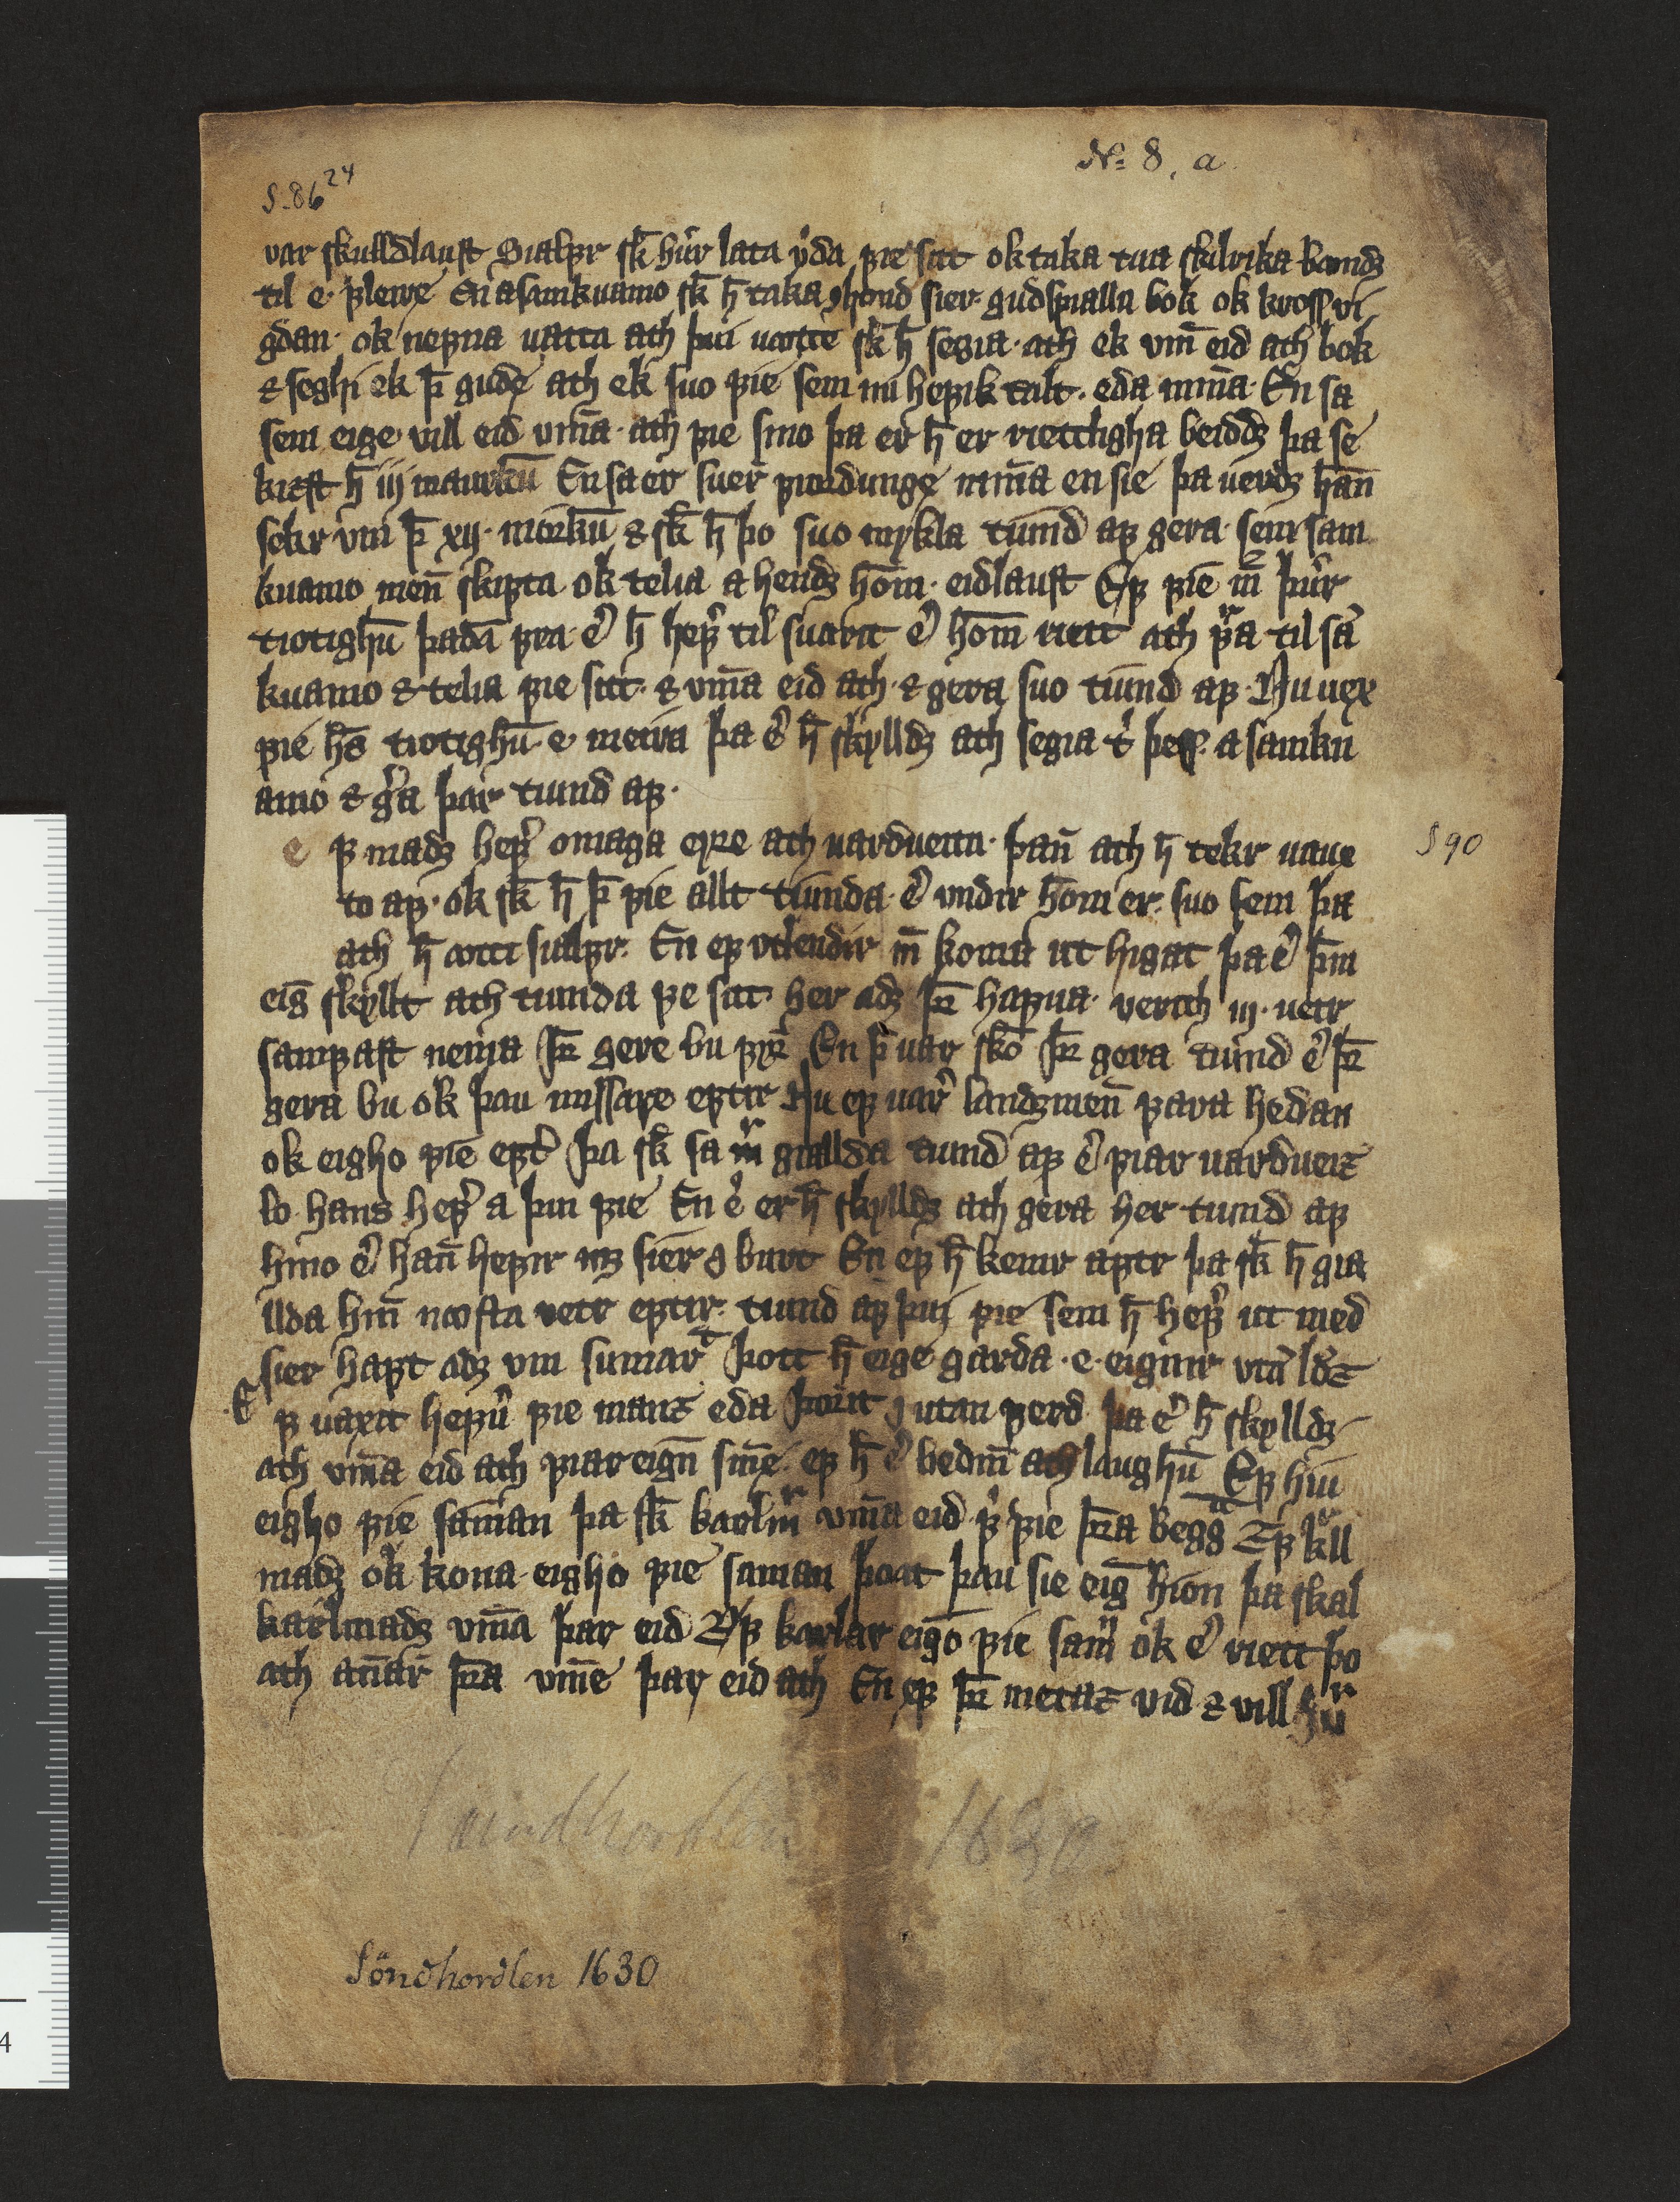 No: 8, a
S. 86 24
var skulldlaust Sialfr sk̄ huͬr lata uͥda fíe sítt ok taka tua skilrika bøndꝫ
til e. fleire En a samkuamo sk̄ h̄ taka j hond sier. gudspialla bok ok kross vi
gdan. ok nefna uatta ath þui uætte sk̄ h̄ segia. ath ek vin̄ eid ath bok
& seghi ek þ̄ gude ath ek suo fie sem nu hefik talt. eda minna. En sa
sem eige vill eid vin̄a. ath fie sino þa er h̄ er rettligha beiddꝫ þa se
kizst h̄ iij maurkū En sa er suer fiordunge min̄a en sie þa uerdꝫ han̄
sekr vm þ̄ xij. mørkū & sk̄ h̄ þo suo mykla tiund af gera. sem sam
kuamo men̄ skipta ok telia a hendꝫ hom̄. eidlaust Ef fie m̄ þuͬr
tiotighū þadā fra. eͬ h̄ hefͬ til suarit eͬ hom̄ riett ath fͬa til sā
kuamo & telia fie sitt. & vin̄a eid ath. & gera suo tiund af. Nu uex
fie h̄s tiotighū e meira þa eͬ h̄ skylldꝫ ath segia tͥ þess. a samku
amo & gͬa þar tiund af.
e f madꝫ hefͬ omaga eyre ath uardueita. þan̄ ath h̄ tekr uauxe
S 90
to af. ok sk̄ h̄ þ̄ fie allt tiunda. eͬ vndir hom̄ er. suo sem þa
ath h̄ ætti sialfr. En ef vtlendir m̄ koma ut higat þa eͬ þm̄
eiḡ skyllt ath tiunda fe sitt. her adꝫ þr̄ hafua. verith iij. uetr
samfast nema þr̄ gere bu fyrͬ En þ̄ uar sko þr̄ gera tiund eͬ þr̄
gera bu ok þau missare eptir Nu ef uarͬ landzmen̄ fara hedan
ok eigho fie eptͬ þa sk̄ sa mͬ giallda tiund af eͬ fiar uarduei&
lo hans hefͬ a þui fie En eͥ er h̄ skylldꝫ ath gera her tiund af
hino eͬ han̄ hefir mꝫ sier j burt En ef h̄ kemr aptr þa sk̄ h̄ gia
llda hin̄ næsta vetr eptir. tiund af þui fie sem h̄ hefͬ ut med
sier haft adꝫ vm sumarͭ þott h̄ eige garda. e. eignir
E f uaxit hefͬ fie manz eda þorit j utan ferd þa eͬ h̄ skylldꝫ
ath vin̄a eid ath fiar eign̄ sin̄e. ef h̄ eͬ bedin̄ ath laughū Ef hiu
eigho fie saman þa sk̄ karlmͬ vin̄a eid fͥ fie þr̄a begg Ef kll
madꝫ ok kona eigho fie saman þoat þau sie eiḡ hion þa skal
karlmadꝫ vin̄a þar eid Ef karlar eigo fie sam̄ ok eͬ riett þo
ath an̄ar þr̄a vin̄e þar eid ath En ef þr̄ metaz vid & vill huͬ
Sundhordlen 1630
Söndhordlen 1630
4